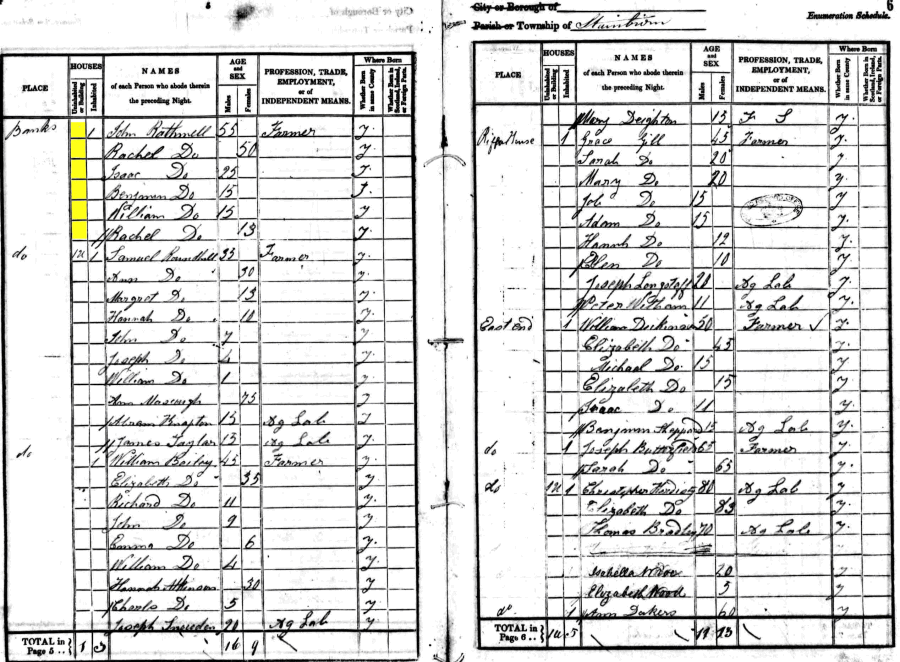 City or Borough of
Parish or Township of Stainburn
6
Enumeration Schedule.
PLACE
HOUSES
Uninhabited or Building
Inhabited
NAMES
of each Person who abode therein
the preceding Night.
AGE
and
SEX
Males
Females
PROFESSION, TRADE,
EMPLOYMENT,
or of
INDEPENDENT MEANS.
Where Born
Whether Born in same County
Whether Born in Scotland, Ireland, or Foreign Parts.
Banks 1 John Rothmell 55 Farmer y.
Rachel Do 50 y.
Isaac Do 25 y.
Benjamin Do 15 y.
William Do 15 y
Rachel Do 13 y.
do 1U 1 Samuel 35 Farmer y.
Ann Do 30 y.
Margret Do 13 y.
Hannah Do 10 y.
John Do 7 y
Joseph Do 4 y.
William Do 1 y
Ann 75 y.
Abram Knapton 15 Ag Lab y
James Taylor 13 Ag Lab y.
do 1 William Bailey 45 Farmer y.
Elizabeth Do 35 y
Richard Do 11 y.
John Do 9 y.
Emma Do 6 y.
William Do 4 y.
Hannah Atkinson 30 y
Charls Do 5 y
Joseph 20 Ag Lab y
TOTAL in
Page 5 .. } 1 3 16 9
PLACE
HOUSES
Uninhabited or Building
Inhabited
NAMES
of each Person who abode therein
the preceding Night.
AGE
and
SEX
Males
Females
PROFESSION, TRADE,
EMPLOYMENT,
or of
INDEPENDENT MEANS.
Where Born
Whether Born in same County
Whether Born in Scotland, Ireland, or Foreign Parts.
Mary Deighton 15 F S y.
Riffa House 1 Grace Gill 45 Farmer y.
Sarah Do 20 y
Mary Do 20 y.
Job Do 15 y
Adam Do 15 y.
Hannh Do 12 y.
Ellen Do 10 y
Joseph Longstaff 20 Ag Lab y.
Peter Witham 11 Ag Lab y.
East End 1 William Dickinson 50 Farmer y.
Elizabeth Do 45 y.
Michael Do 15 y
Elizabeth Do 15 y.
Isaac Do 11 y.
Benjamin Sheppard 15 Ag Lab y.
do 1 Joseph Butterfield 65 Farmer y.
Sarah Do 65 y.
do 1U 1 Christopher 80 Ag Lab y.
Elizabeth Do 83 y.
Thomas Bradley 70 Ag Lab y.
Isabella 20 y
Elizabeth Wood 5 y.
do 1 Ann Dakers 60 y
TOTAL in
Page 6 .. } 1U 5 11 13